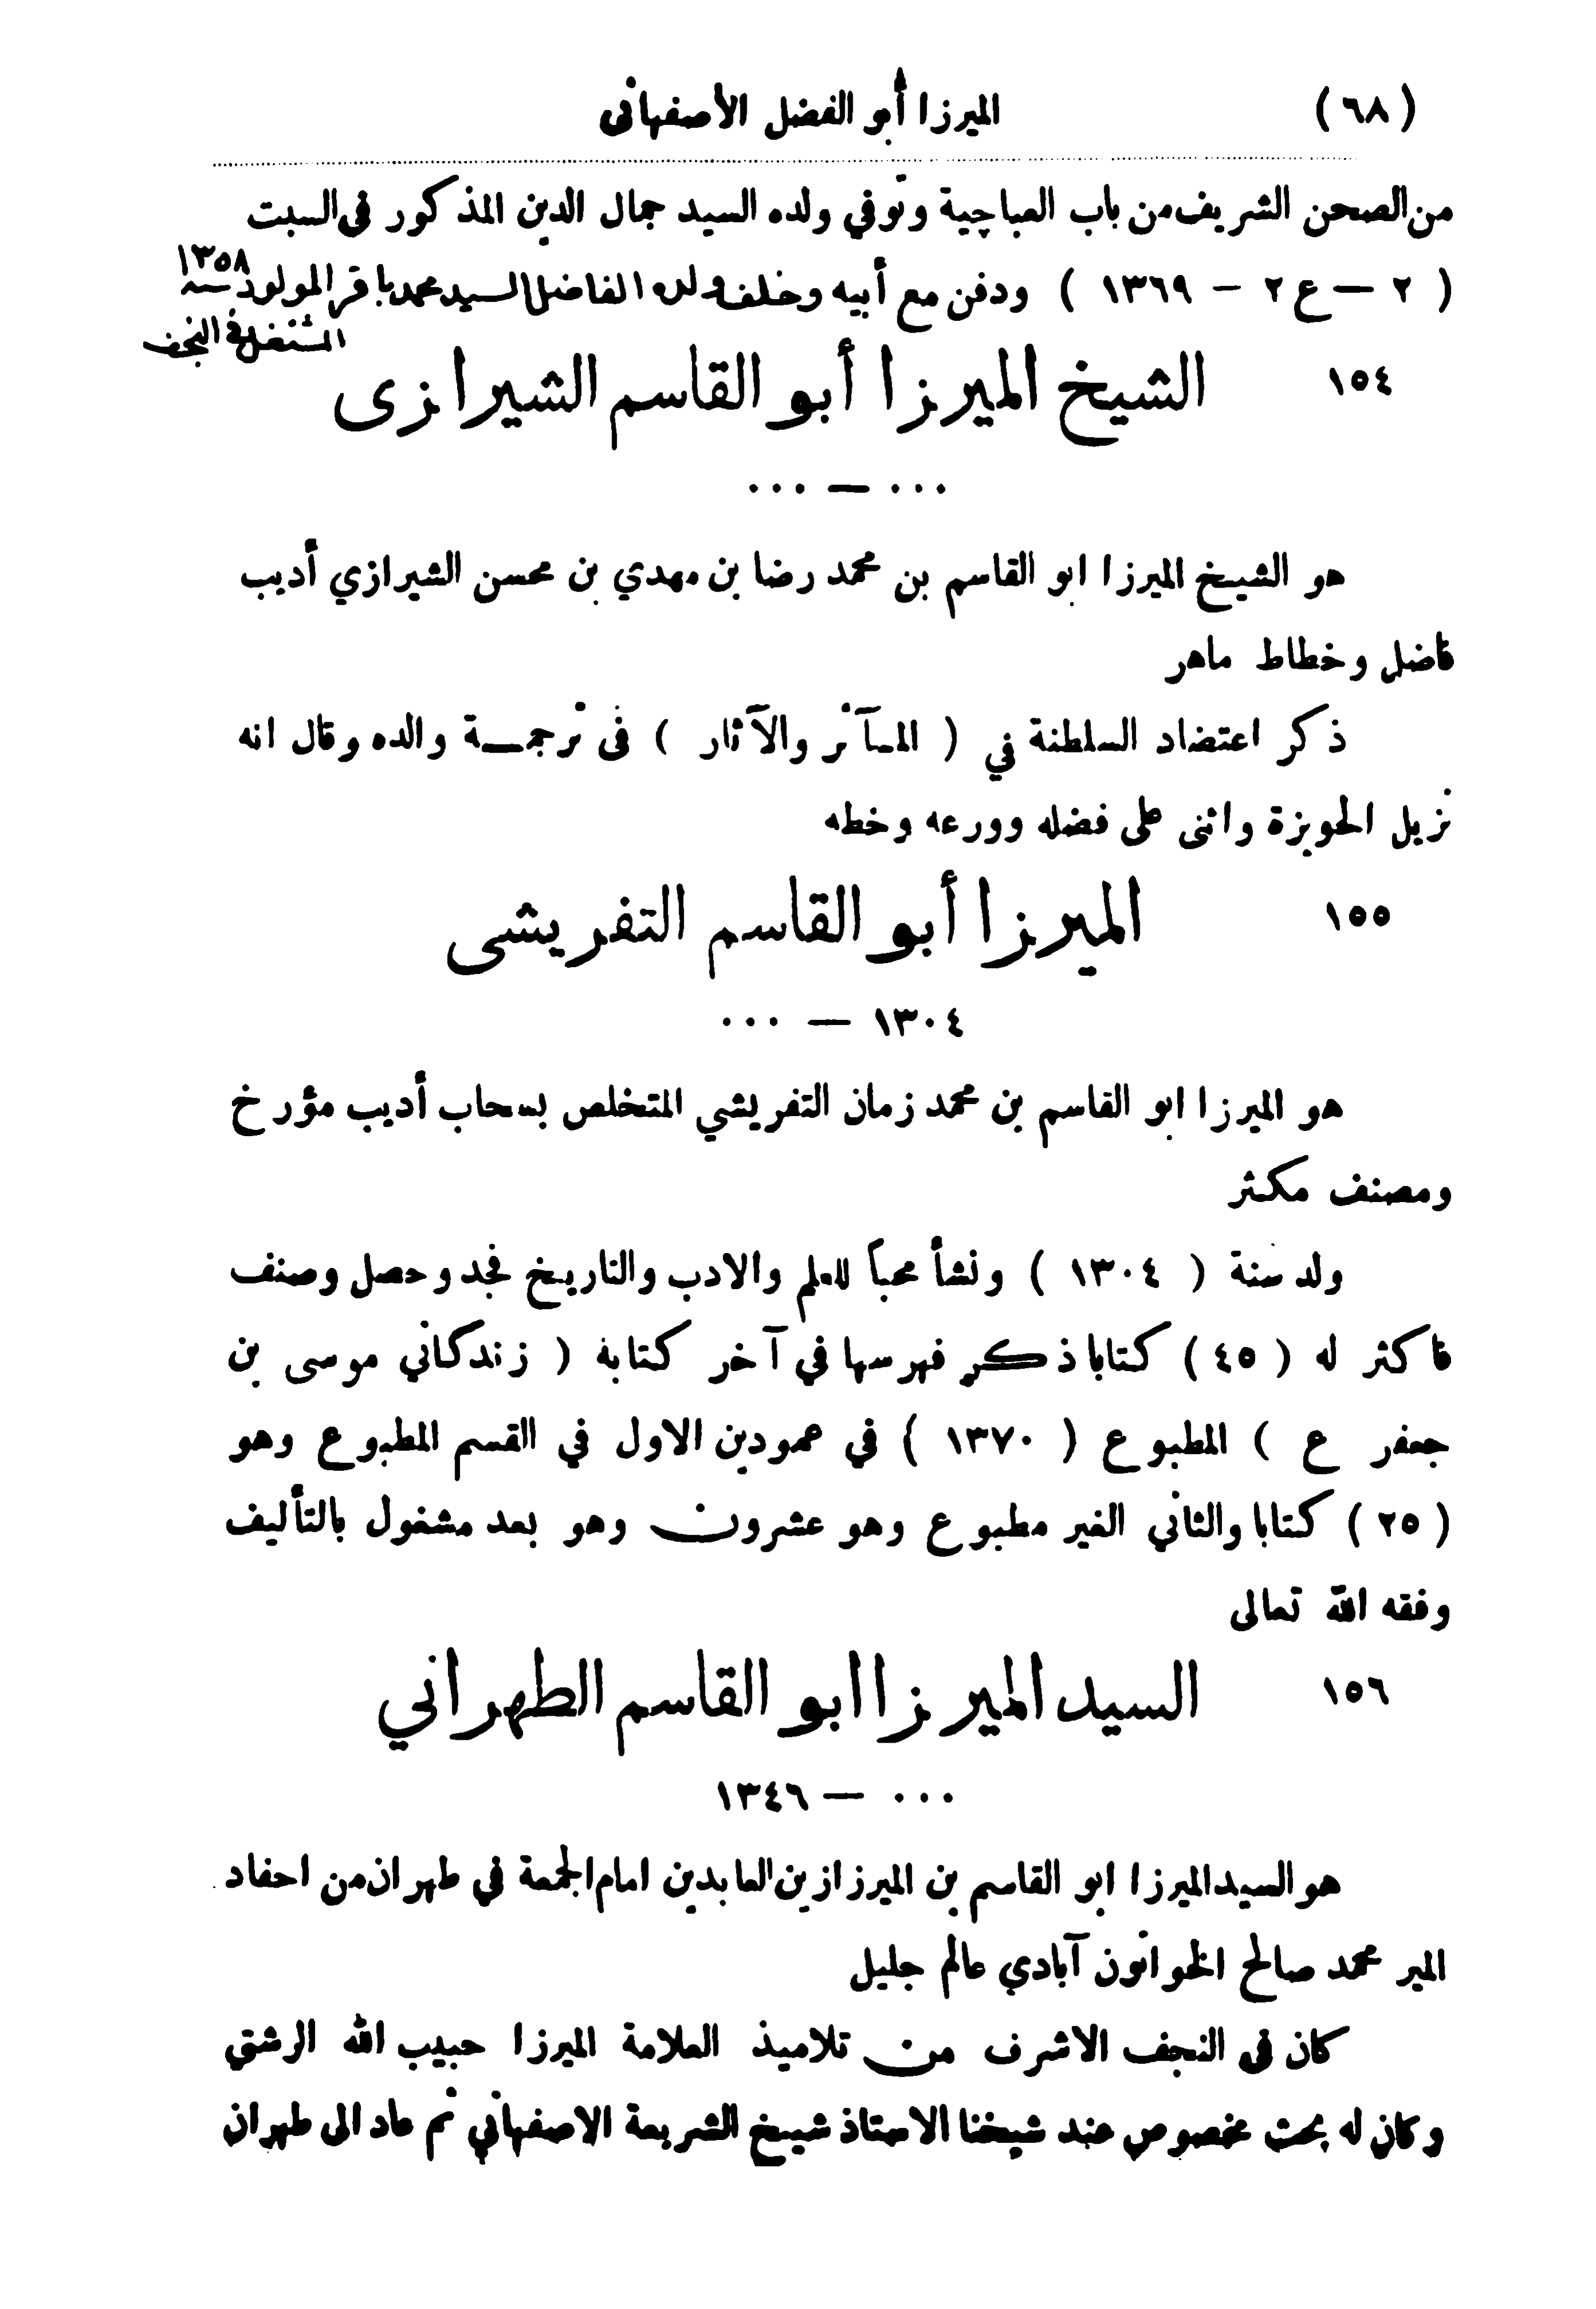 (٦٨) الميرزا أبو الفضل الأصفهانى
من الصحن الشريف من باب العباچية وتوفي ولده السيد جمال الدين المذكور فى السبت
( ٢ — ع ٢ - ١٣٦٩ ) ودفن مع أبيه وخلف ولده الفاضل السيد محمد باقر المولود سنة ١٣٥٨
المشتغل في النجف
١٥٤ الشيخ الميرزا أبو القاسم الشيرازى
... — ...
هو الشيخ الميرزا ابو القاسم بن محمد رضا بن مهدي بن محسن الشيرازي أديب
فاضل وخطاط ماهر
ذكر اعتضاد السلطنة في ( المـآثر والآثار ) فى ترجمـة والده وقال انه
نزيل الحويزة واثنى على فضله وورعه وخطه
١٥٥ الميرزا أبو القاسم التفريشى
١٣٠٤ — ...
هو الميرزا ابو القاسم بن محمد زمان التفريشي المتخلص بسحاب أديب مؤرخ
ومصنف مكثر
ولد سنة ( ١٣٠٤ ) ونشأ محباً للعلم والادب والتاريخ فجد وحصل وصنف
فاكثر له ( ٤٥ ) كتابا ذكر فهرسها في آخر كتابه ( زندكاني موسى بن
جعفر ع ) المطبوع ( ١٣٧٠ ) في عمودين الاول في القسم المطبوع وهو
( ٢٥ ) كتابا والثاني الغير مطبوع وهو عشرون وهو بعد مشغول بالتأليف
وفقه الله تعالى
١٥٦ السيد الميرزا ابو القاسم الطهراني
... — ١٣٤٦
هو السيد الميرزا ابو القاسم بن الميرزا زين العابدين امام الجمعة في طهران من احفاد
المير محمد صالح الخواتون آبادي عالم جليل
كان فى النجف الاشرف من تلاميذ العلامة الميرزا حبيب الله الرشتي
وكان له بحث مخصوص عند شيخنا الاستاذ شيخ الشريعة الاصفهاني ثم عاد الى طهران